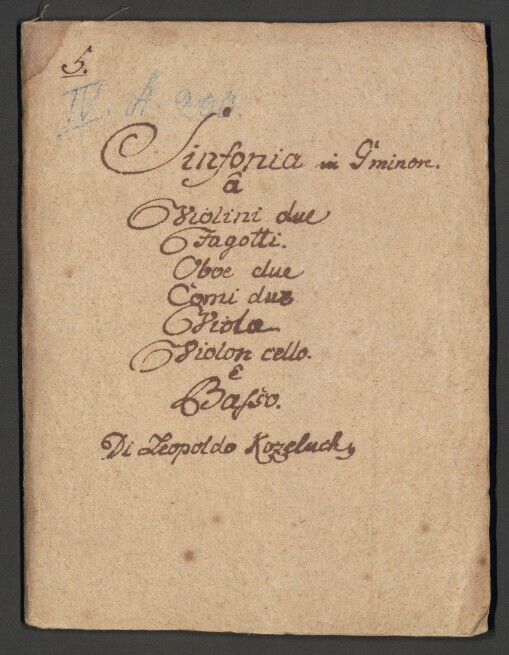 5.
IV. A. 200.
Sinfonia in G minore.
â
Violini due
Fagotti.
Oboe due
Corni due
Viola
Violon cello.
e
Basso.
Di Leopoldo Kozeluch